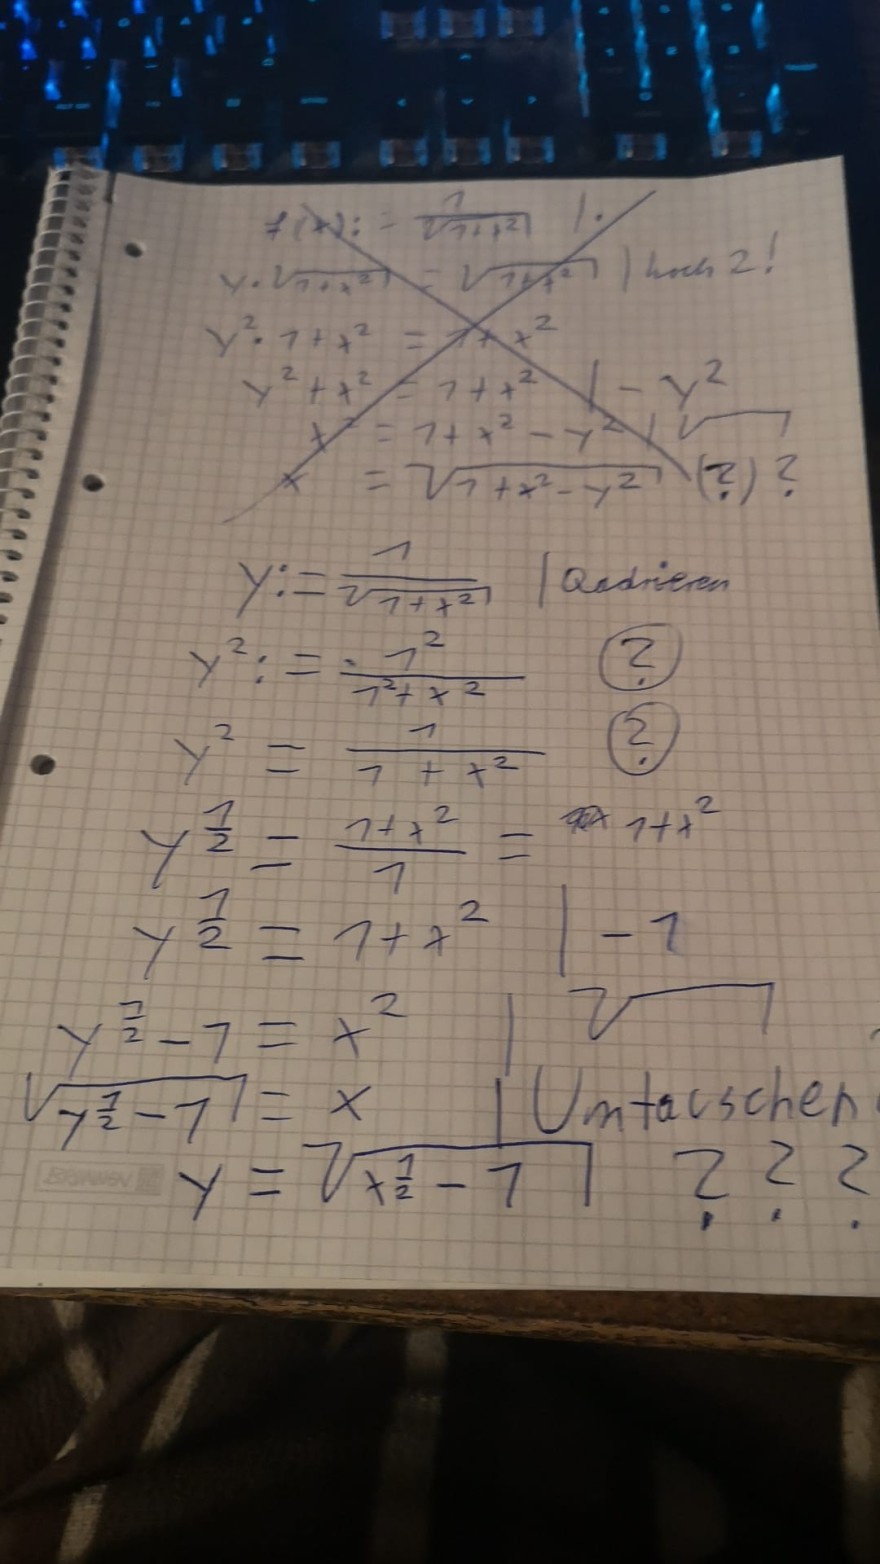 f(x) := 1/√(1+x²) | ·
y · √(1+x²) = √(1+x²) | hoch 2!
y² · 1+x² = 1+x²
y² + x² = 1+x² | - y²
x² = 1+x² - y² | √
x = √(1+x²-y²) (?) ?
y := 1/√(1+x²) | Qadrieren
y² := 1²/(1²+x²) ?
y² = 1/(1+x²) ?
y^(1/2) = (1+x²)/1 = 1+x²
y^(1/2) = 1+x² | - 1
y^(1/2) - 1 = x² | √
√(y^(1/2) - 1) = x | Umtauschen
y = √(x^(1/2) - 1) ? ? ?